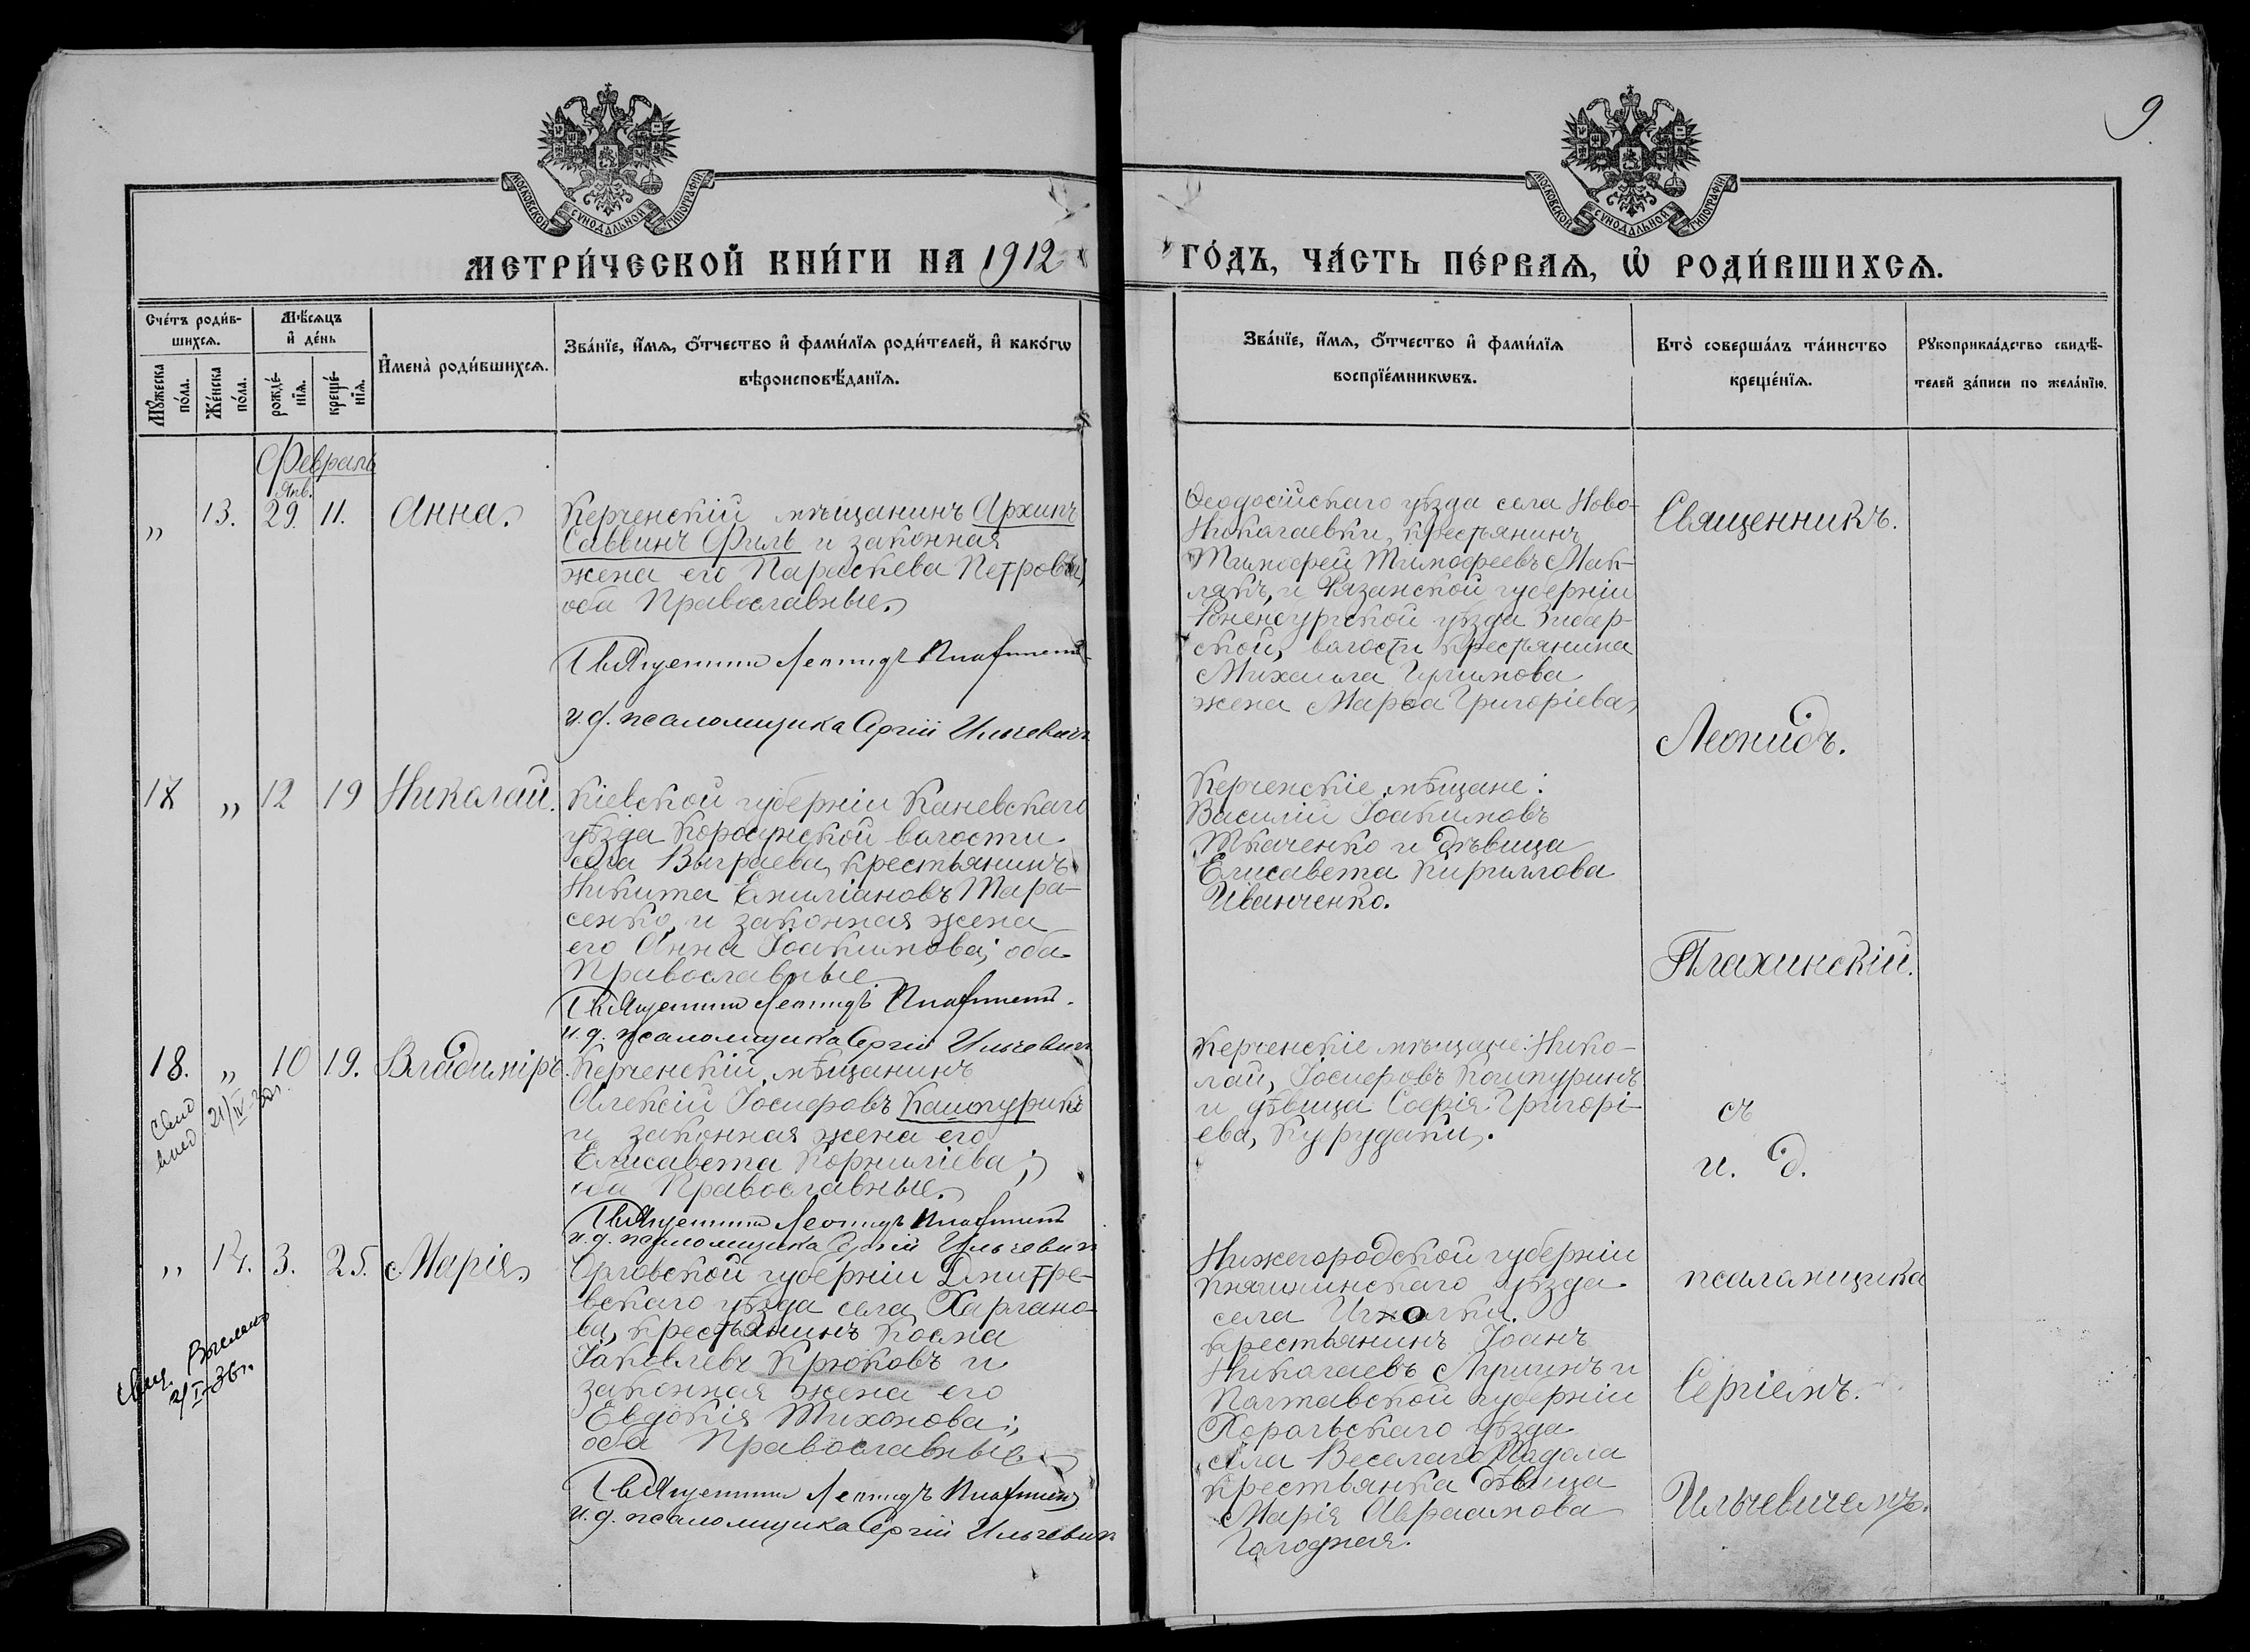 9
МОСКОВСКОЙ СѴНОДАЛЬНОЙ ТИПОГРАФІИ
МОСКОВСКОЙ СѴНОДАЛЬНОЙ ТИПОГРАФІИ
МЕТРИ́ЧЕСКОЙ КНИ́ГИ НА 1912
ГО́ДЪ, ЧА́СТЬ ПЕ́РВАѦ, Ѡ҆ РОДИ́ВШИХСѦ.
Сче́тъ роди́в-
шихсѧ.
Мꙋ́жеска
по́ла.
Же́нска
по́ла.
Мѣ́сѧцъ
и҆ де́нь
рожде́-
нїѧ.
креще́-
нїѧ.
И҆мена̀ роди́вшихсѧ.
Зва́нїе, и҆́мѧ, ѻ҆́тчество и҆ фами́лїѧ роди́телей, и҆ како́гѡ
вѣроисповѣ́данїѧ.
Зва́нїе, и҆́мѧ, ѻ҆́тчество и҆ фами́лїѧ
воспрїе́мникѡвъ.
Кто̀ соверша́лъ та́инство
креще́нїѧ.
Рꙋкоприкла́дство свидѣ́-
телей за́писи по жела́нїю.
Февраль
Янв.
„ 13. 29. 11. Анна.
Керченскій мѣщанинъ Архипъ
Саввинъ Филь и законная
жена его Параскева Петрова,
оба Православные.
Священникъ Леонидъ
и.д. псаломщика Сергій Ильчевичъ
Ѳеодосійскаго уѣзда села Ново-
Николаевки, крестьянинъ
Тимофей Тимофеевъ Мак-
лякъ, и Рязанской губерніи
уѣзда
ской, волости крестьянина
Михаила
жена Марѳа Григоріева,
Священникъ.
Леонидъ.
Плахинскій.
съ
и. д.
псаломщика
Сергіемъ.
Ильчевичемъ.
17 „ 12 19 Николай.
Кіевской губерніи Каневскаго
уѣзда Корсунской волости
села Выграева, крестьянинъ
Никита Емиліановъ Тара-
сенко, и законная жена
его Анна Іоакимова; оба
Православные.
Священникъ Леонидъ
и.д. псаломщика Сергій Ильчевичъ
Керченскіе мѣщане:
Василій Іоакимовъ
Ткаченко и дѣвица
Елисавета Кириллова
Иванченко.
18. „ 10 19. Владиміръ.
Керченскій, мѣщанинъ
Алексій Іосифовъ Кашпуринъ
и законная жена его
Елисавета Корниліева;
оба Православные.
Священникъ Леонидъ
и.д. псаломщика Сергій Ильчевичъ
Керченскіе мѣщане: Нико-
лай, Іосифовъ Кашпуринъ
и дѣвица Софія Григорі-
ева, Курудаки.
„ 14. 3. 25. Марія.
Орловской губерніи Дмитре-
вскаго уѣзда села Харлано-
ва, крестьянинъ Косма
Іаковлевъ Крюковъ и
законная жена его
Евдокія Тихонова;
оба Православные.
Священникъ Леонидъ
и.д. псаломщика Сергій Ильчевичъ
Нижегородской губерніи
Княгининскаго уѣзда
села
крестьянинъ Іоанъ
Николаевъ и
Полтавской губерніи
Хорольскаго уѣзда
села Веселаго Подола
крестьянка дѣвица
Марія Авраамова
Голодная.